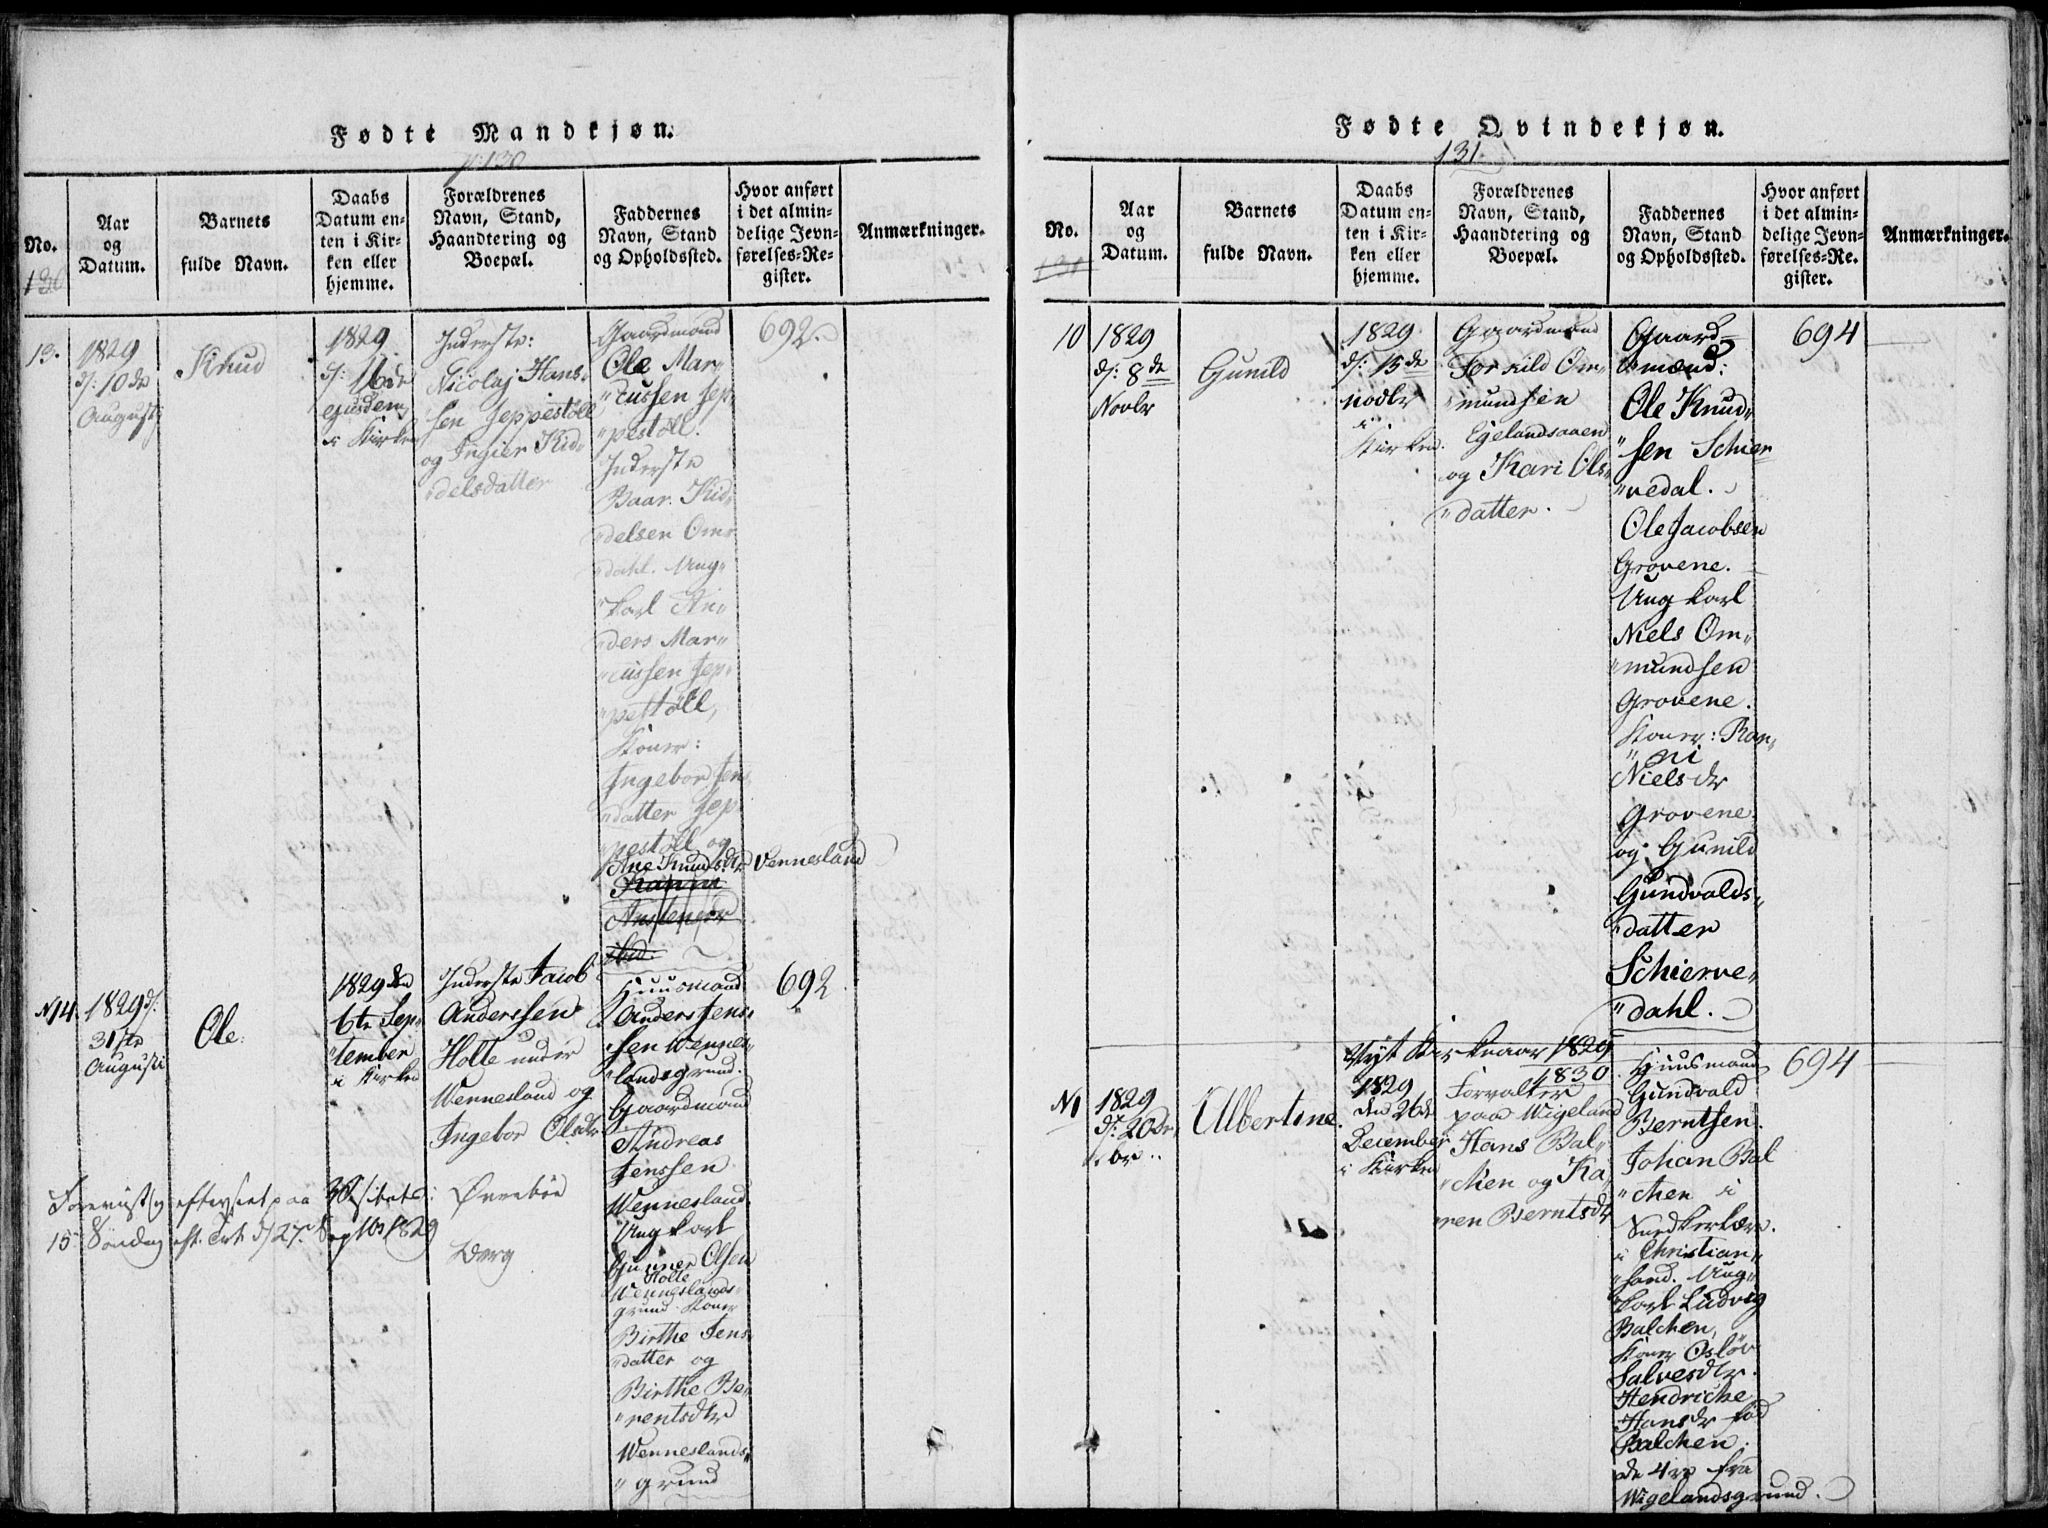 Fødte Mandkjøn.
p: 130
No.
130
Aar
og
Datum.
Barnets
fulde Navn.
Daabs
Datum en-
ten i Kir-
ken eller
hjemme.
Forældrenes
Navn, Stand,
Haandtering og
Boepæl.
Faddernes
Navn, Stand
og Opholdssted.
Hvor anført
i det almin-
delige Jevn-
førelses-Re-
gister.
Anmærkninger.
13.
1829
d: 10de
August
Knud
1829
d: 16de
ejusdem
i Kirken
Inderste:
Nicolaj Han-
sen Jeppestøll
og Ingier Kid-
"delsdatter
Gaardmand
Ole Mar-
"cussen Jep-
"pestøll.
Inderste
Baar. Kid-
"delsen Om-
"dahl. Ung-
"karl An-
ders Mar-
"cussen Jep-
"pestøll,
Koner:
Ingebor Jens
"datter Jep
"pestøll og
Ane Knudsdtr Vennesland
692.
N14.
1829 d:
31te
Augusti
Ole.
1829 den
6te Sep-
"tember
i Kirken
Inderste Jacob
Anderssen
Holte under
Wennesland og
Ingebor Olsdtr
Huusmand
Anders Jens-
"sen Wennes-
"landsgrund.
Gaardmand
Andreas
Jenssen
Wennesland.
Ung karl
Gunner Olsen
Holte
Wenneslands-
grund. Koner
Birthe Jens-
"datter og
Birthe Be-
"rentsdtr
Wenneslands-
"grund
692.
Foreviist og efterseet paa Visitats: Øvrebøe
15 Søndag eft. Trt. d/ 27. Sept 1829
Berg
Fødte Qvindekjøn.
131.
No.
131
Aar
og
Datum.
Barnets
fulde Navn.
Daabs
Datum en-
ten i Kir-
ken eller
hjemme.
Forældrenes
Navn, Stand,
Haandtering og
Boepæl.
Faddernes
Navn, Stand
og Opholdssted.
Hvor anført
i det almin-
delige Jevn-
førelses-Re-
gister.
Anmærkninger.
10
1829
d: 8de
Novbr
Gunild
1829
d: 15de
novbr
i
Kirken.
Gaardmand
Torkild Om-
"mundsen
Egelandsaaen
og Kari Ols-
"datter.
Gaard-
"mænd:
Ole Knud-
"sen Schier-
"vedal.
Ole Jacobsen
Grovene.
Ung karl
Niels Om-
"mundsen
Grovene.
Koner: Ran-
"ni
Nielsdtr
Grovene
og Gunild
Gundvalds-
"datter
Schierve-
"dahl.
694
Nyt Kirkeaar 1829
1830
N1
1829
d: 20de
Albertine.
1829
den 26de
December
i Kirken
Forvalter
paa Wigeland
Hans Bal-
"chen og Ka-
"ren Berntsdtr
Huusmand
Gundvald
Berntsen.
Johan Bal
"chen i
i Christian-
"sand. Ung-
"karl Ludvig
Balchen,
Koner Osløv
Salvesdtr.
Hendriche
Hansdtr fød
Balchen.
de 4re fra
Wigelandsgrund.
694